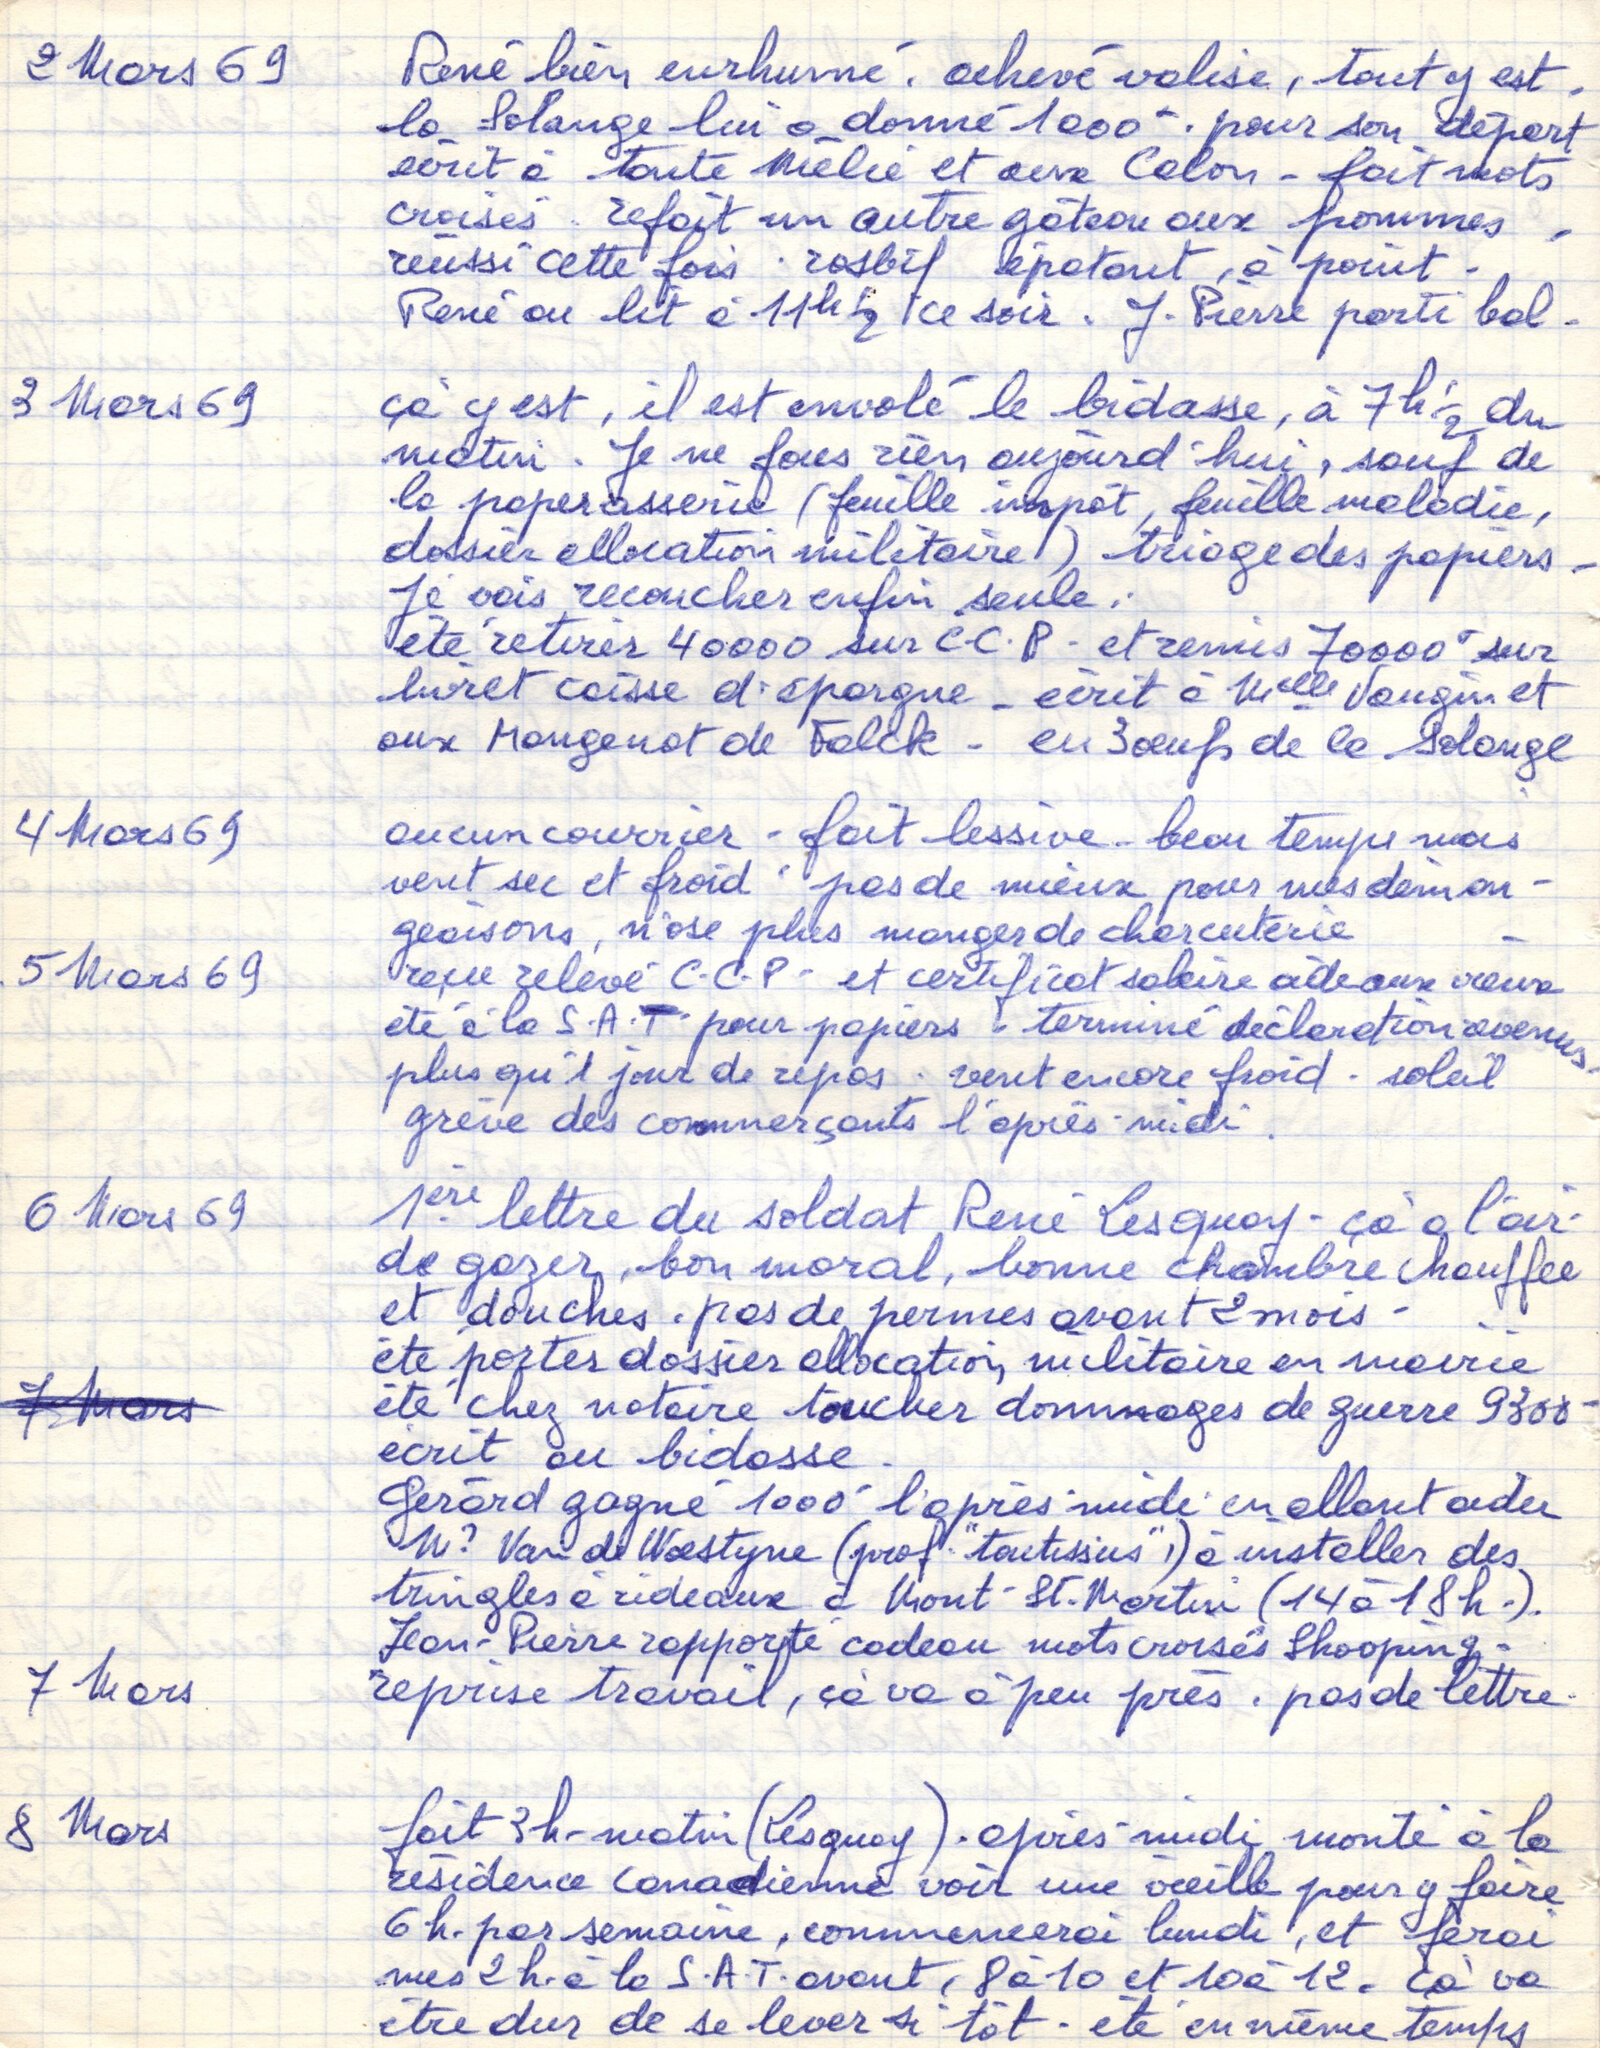 2 Mars 69 René bien enrhumé. achevé valise, tout y est.
la Solange lui a donné 1000 - . pour son départ
écrit à tante Mélie et aux Colon - fait mots
croisés. refait un autre gâteau aux pommes,
réussi cette fois. rosbif épatant, à point -
René au lit à 11h 1/2 ce soir. J. Pierre parti bal -
3 Mars 69 çà y est, il est envolé le bidasse, à 7h 1/2 du
matin. Je ne fais rien aujourd'hui, sauf de
la paperasserie (feuille impôt, feuille maladie,
dossier allocation militaire) triage des papiers -
Je vais recoucher enfin seule.
été retirer 40000 sur C.C.P - et remis 70000 - sur
livret caisse d'épargne - écrit à Melle Vaugin et
aux Mougenot de Falck - eu 3 œufs de la Solange
4 Mars 69 aucun courrier - fait lessive - beau temps mais
vent sec et froid. pas de mieux pour mes déman-
geaisons, n'ose plus manger de charcuterie -
5 Mars 69 reçu relevé C.C.P - et certificat salaire aide aux vieux
été à la S.A.T. pour papiers. terminé déclaration revenus.
plus qu'1 jour de repos. vent encore froid. soleil
grève des commerçants l'après-midi.
6 Mars 69 1ère lettre du soldat René Lesquoy - çà a l'air
de gazer, bon moral, bonne chambre chauffée
et douches. pas de permes avant 2 mois -
été porter dossier allocation militaire en mairie
7 Mars été chez notaire toucher dommages de guerre 9300 -
écrit au bidasse.
Gérard gagné 1000 l'après-midi en allant aider
Mr Van de Woestyne (prof "toutissus") à installer des
tringles à rideaux à Mont-St-Martin (14 à 18h.).
Jean-Pierre rapporté cadeau mots croisés Shooping -
7 Mars reprise travail, çà va à peu près. pas de lettre.
8 Mars fait 3h - matin (Lesquoy). après-midi monté à la
résidence canadienne voir une vieille pour y faire
6h. par semaine, commencerai lundi, et ferai
mes 2h. à la S.A.T. avant, 8 à 10 et 10 à 12. çà va
être dur de se lever si tôt - été en même temps